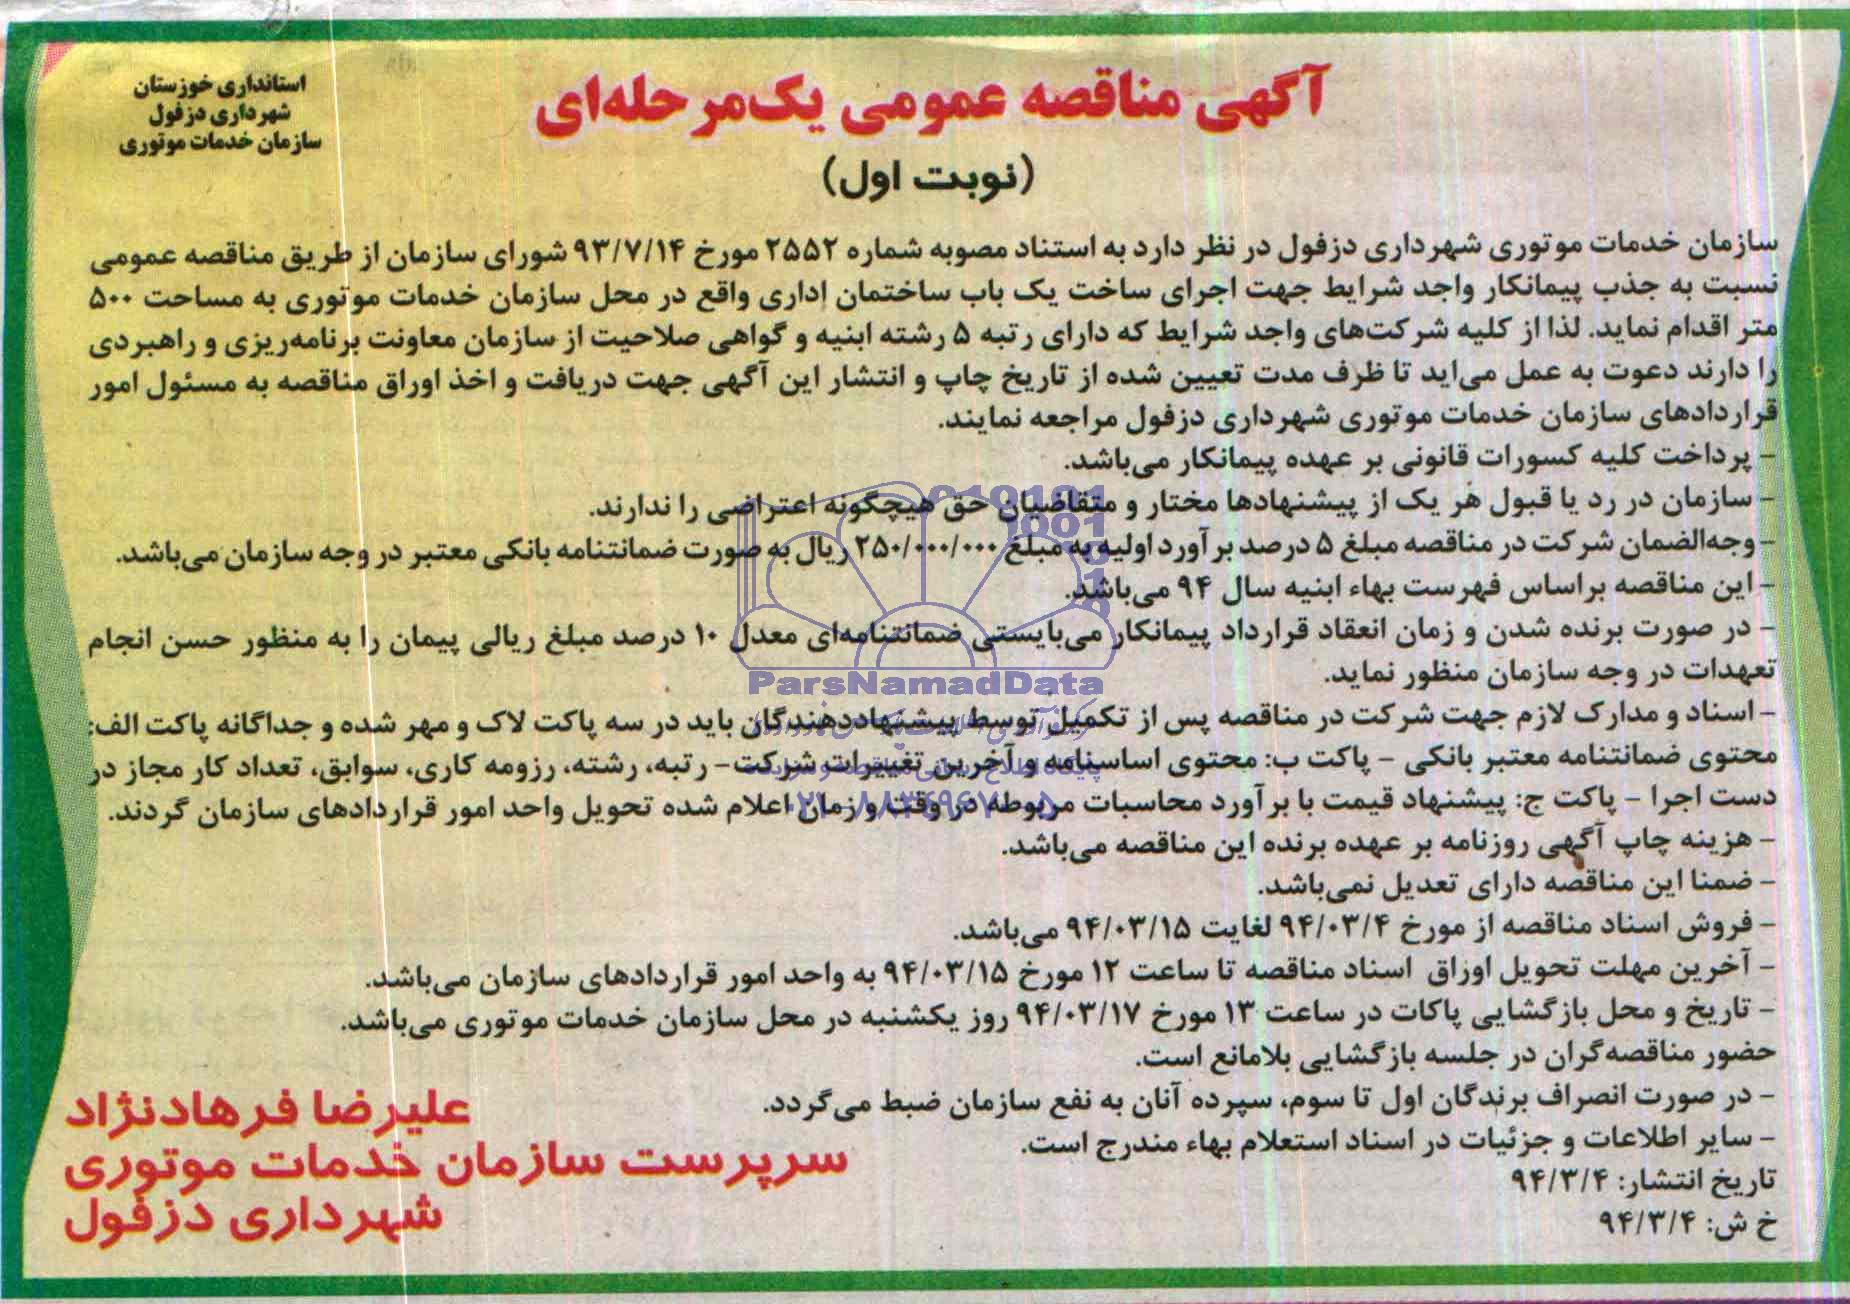 استانداری خوزستان
شهرداری دزفول
سازمان خدمات موتوری
آگهی مناقصه عمومی یک‌مرحله‌ای
(نوبت اول)
سازمان خدمات موتوری شهرداری دزفول در نظر دارد به استناد مصوبه شماره ۲۵۵۲ مورخ ۹۳/۷/۱۴ شورای سازمان از طریق مناقصه عمومی
نسبت به جذب پیمانکار واجد شرایط جهت اجرای ساخت یک باب ساختمان اداری واقع در محل سازمان خدمات موتوری به مساحت ۵۰۰
متر اقدام نماید. لذا از کلیه شرکت‌های واجد شرایط که دارای رتبه ۵ رشته ابنیه و گواهی صلاحیت از سازمان معاونت برنامه‌ریزی و راهبردی
را دارند دعوت به عمل می‌اید تا ظرف مدت تعیین شده از تاریخ چاپ و انتشار این آگهی جهت دریافت و اخذ اوراق مناقصه به مسئول امور
قراردادهای سازمان خدمات موتوری شهرداری دزفول مراجعه نمایند.
- پرداخت کلیه کسورات قانونی بر عهده پیمانکار می‌باشد.
- سازمان در رد یا قبول هر یک از پیشنهادها مختار و متقاضیان حق هیچگونه اعتراضی را ندارند.
- وجه‌الضمان شرکت در مناقصه مبلغ ۵ درصد برآورد اولیه به مبلغ ۲۵۰/۰۰۰/۰۰۰ ریال به صورت ضمانتنامه بانکی معتبر در وجه سازمان می‌باشد.
- این مناقصه براساس فهرست بهاء ابنیه سال ۹۴ می‌باشد.
- در صورت برنده شدن و زمان انعقاد قرارداد پیمانکار می‌بایستی ضمانتنامه‌ای معدل ۱۰ درصد مبلغ ریالی پیمان را به منظور حسن انجام
تعهدات در وجه سازمان منظور نماید.
ParsNamadData
- اسناد و مدارک لازم جهت شرکت در مناقصه پس از تکمیل توسط پیشنهاددهندگان باید در سه پاکت لاک و مهر شده و جداگانه پاکت الف:
محتوی ضمانتنامه معتبر بانکی - پاکت ب: محتوی اساسنامه و آخرین تغییرات شرکت- رتبه، رشته، رزومه کاری، سوابق، تعداد کار مجاز در
دست اجرا - پاکت ج: پیشنهاد قیمت با برآورد محاسبات مربوطه در وقت و زمان اعلام شده تحویل واحد امور قراردادهای سازمان گردند.
- هزینه چاپ آگهی روزنامه بر عهده برنده این مناقصه می‌باشد.
- ضمنا این مناقصه دارای تعدیل نمی‌باشد.
- فروش اسناد مناقصه از مورخ ۹۴/۰۳/۴ لغایت ۹۴/۰۳/۱۵ می‌باشد.
- آخرین مهلت تحویل اوراق اسناد مناقصه تا ساعت ۱۲ مورخ ۹۴/۰۳/۱۵ به واحد امور قراردادهای سازمان می‌باشد.
- تاریخ و محل بازگشایی پاکات در ساعت ۱۳ مورخ ۹۴/۰۳/۱۷ روز یکشنبه در محل سازمان خدمات موتوری می‌باشد.
حضور مناقصه‌گران در جلسه بازگشایی بلامانع است.
- در صورت انصراف برندگان اول تا سوم، سپرده آنان به نفع سازمان ضبط می‌گردد.
- سایر اطلاعات و جزئیات در اسناد استعلام بهاء مندرج است.
تاریخ انتشار: ۹۴/۳/۴
خ ش: ۹۴/۳/۴
علیرضا فرهادنژاد
سرپرست سازمان خدمات موتوری
شهرداری دزفول